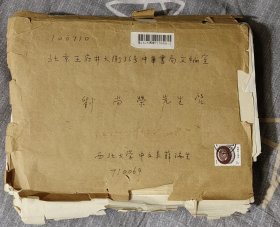 100710
北京王府井大街36号中华书局文编室
劉尚榮先生啓
西北大学中文系薛瑞生
710069